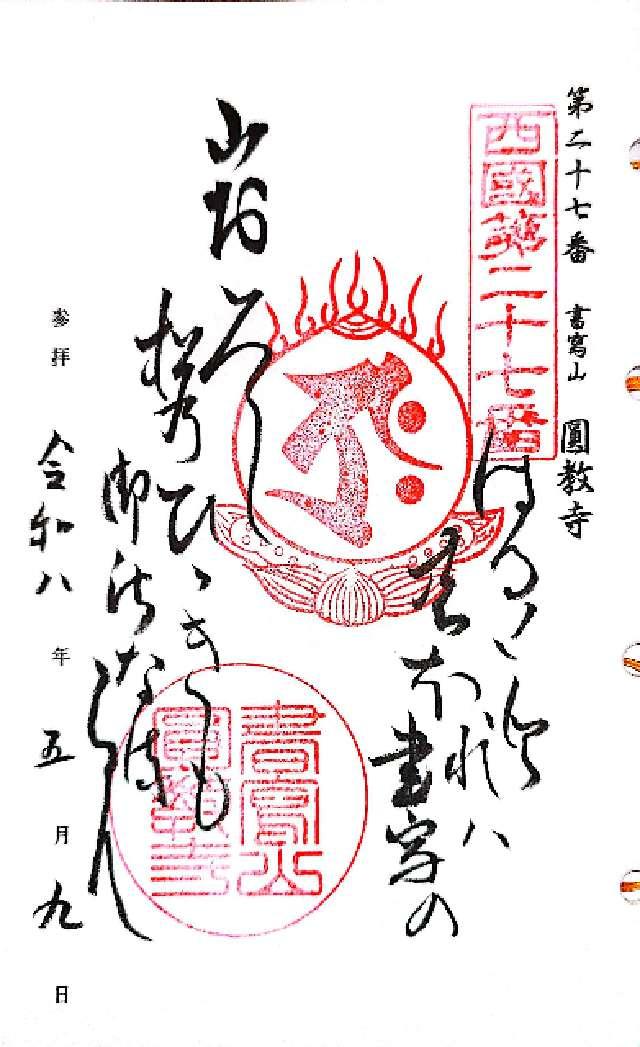 第二十七番 書寫山 圓教寺
西國第二十七番
はる〱と
れハ
書写の
山おろし
松のひゞきも
御法なるらん
書寫山
圓教寺
参拝 令和八年五月九日